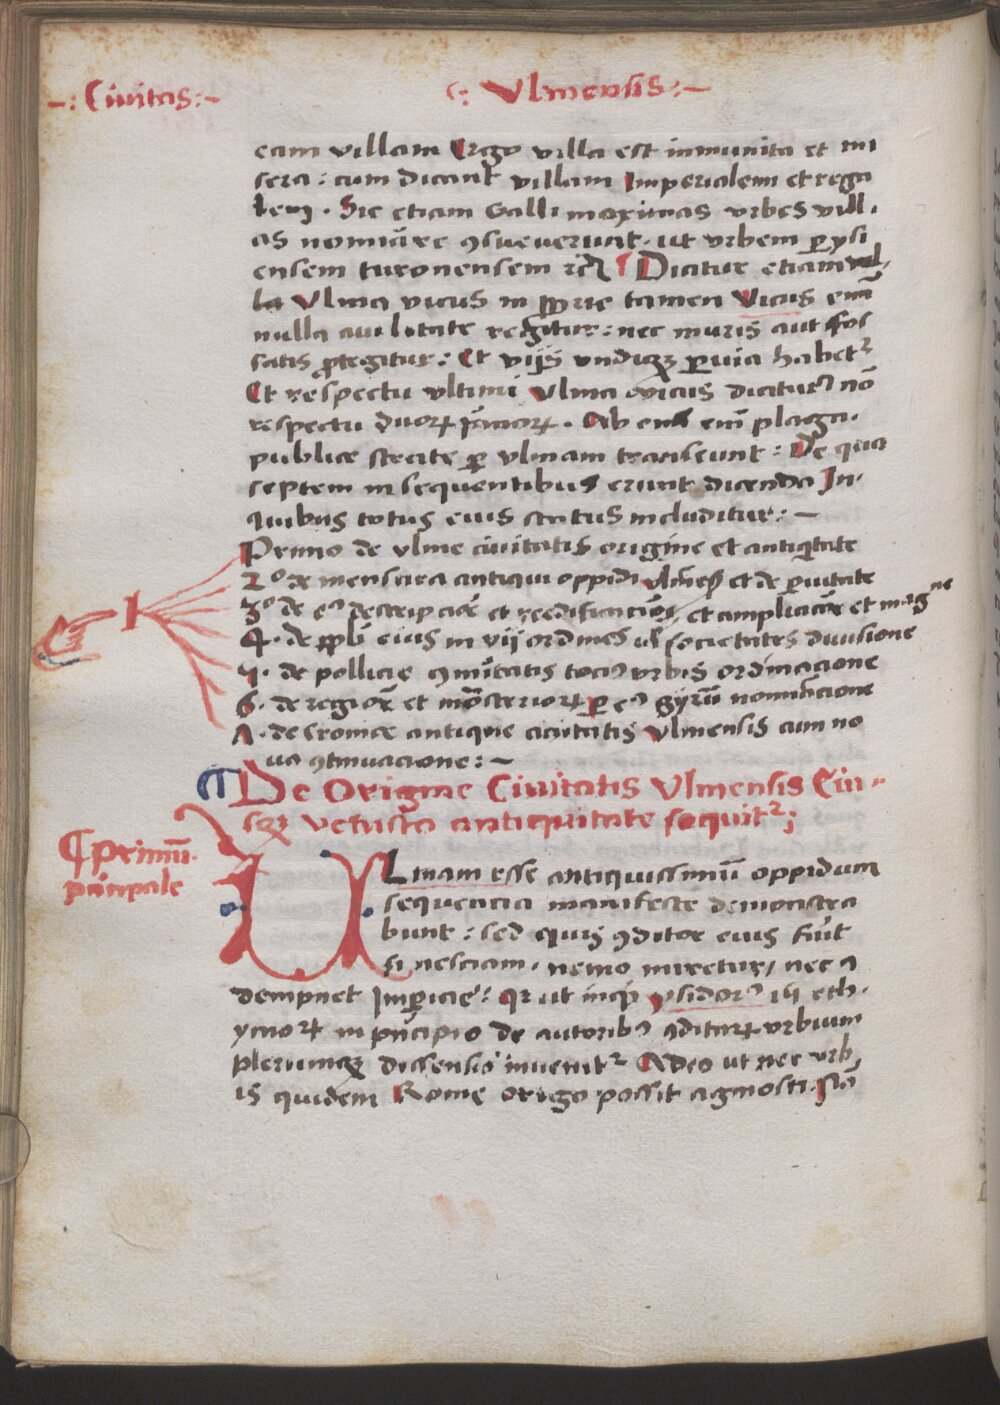 -: Ciuitas :-
:. Vlmensis :-
eam villam Ergo villa est inmunita et mi
sera : cum dicant villam Imperialem et rega
lem · Sic etiam Galli maximas vrbes vill·
as nomiāre ꝯsueuerunt · ut vrbem ꝑysi
ensem turonensem ⁊cꝛ̄ ¶ Dicitur etiam vil-
la Vlma vicus in ꝓprie tamen Vicus enī
nulla ciuilitate regitur : nec muris aut fos
satis ꝓtegitur : Et viis vndiqꝫ ꝑuia habetᷣ
Et respectu vltimi Vlma vicus diciturᷣ nō
respectu duoꝝ pͥmoꝝ · Ab omni enī plaga ·
publice strate ꝑ vlmam transeunt : De qua
septem in sequentibus erunt dicenda In-
quibus totus eius status includitur : -
Primo de vlme ciuitatis origine et antiqͥtate
2º de mensura antiqui oppidi Vlmeñ et de ꝑuitate
3º de eꝰ descripciōe et reedificaciōe et ampliaciōe et magne
4· de ꝓpli eius in vij ordines ul societates diuisione
5· de pollicie ꝯmūitatis tociꝰ vrbis ordinacione
6· de regiōe et mōsterioꝝ ꝑ eꝰ gyrū nominacione
7· de cronice antique ciuitatis Vlmensis cum no
ua ꝯtinuacione : -
¶ De Origine Ciuitatis Vlmensis Eiu-
sqꝫ vetusta antiquitate sequitᷣ ;
¶ primū.
pͥncipale
ULmam esse antiquissimū oppidum
sequencia manifeste demonstra
bunt : sed quis ꝯditor eius fūit
si nesciam · nemo miretur / nec ꝯ
dempnet Imꝑicie : qꝛ ut incip̄ ysidorꝰ in eth·
ymoꝝ in pͥncipio de autoribꝰ ꝯditaꝝ vrbium
plerumqꝫ dissensio inuenitᷣ Adeo ut nec vrb
is quidem Rome origo possit agnosci ·